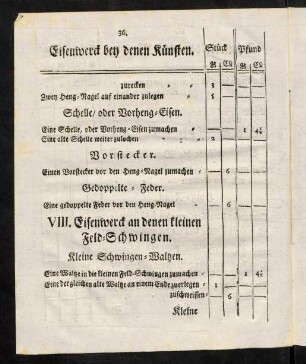 36.
Eisenwerck bey denen Künsten. Stück Pfund
zurecken - - 3
Zwey Heng-Nagel auf einander zulegen - 5
Schelle/ oder Vorheng-Eisen.
Eine Schelle, oder Vorheng-Eisen zumachen - 1
Eine alte Schelle weiter zulochen - 2
Vorstecker.
Einen Vorstecker vor den Heng-Nagel zumachen - 6
Gedoppelte-Feder.
Eine gedoppelte Feder vor den Heng-Nagel - 6
VIII. Eisenwerck an denen kleinen
Feld-Schwingen.
Kleine Schwingen-Waltzen.
Eine Waltze in die kleinen Feld-Schwingen zumachen - 1
Eine dergleichen alte Waltze an einem Ende zuerlegen - 1
zuschweissen - 6
Kleine